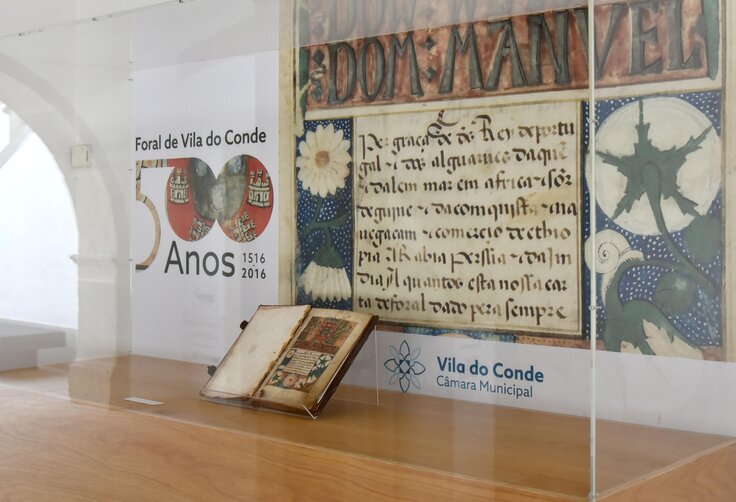 Foral de Vila do Conde
500
Anos 1516
2016
DOM: MANVEL
Per graça de ds Rey de portu
gal ⁊ dos alguarues daquē
⁊ dalem mar em africa ⁊ sōr
de guine ⁊ da comquista ⁊ na
uegacam ⁊ comercio de ethio
pia Arabia Perssia ⁊ da Jn
dia A quantos esta nossa car
ta de foral dado pera sempre
Vila do Conde
Câmara Municipal